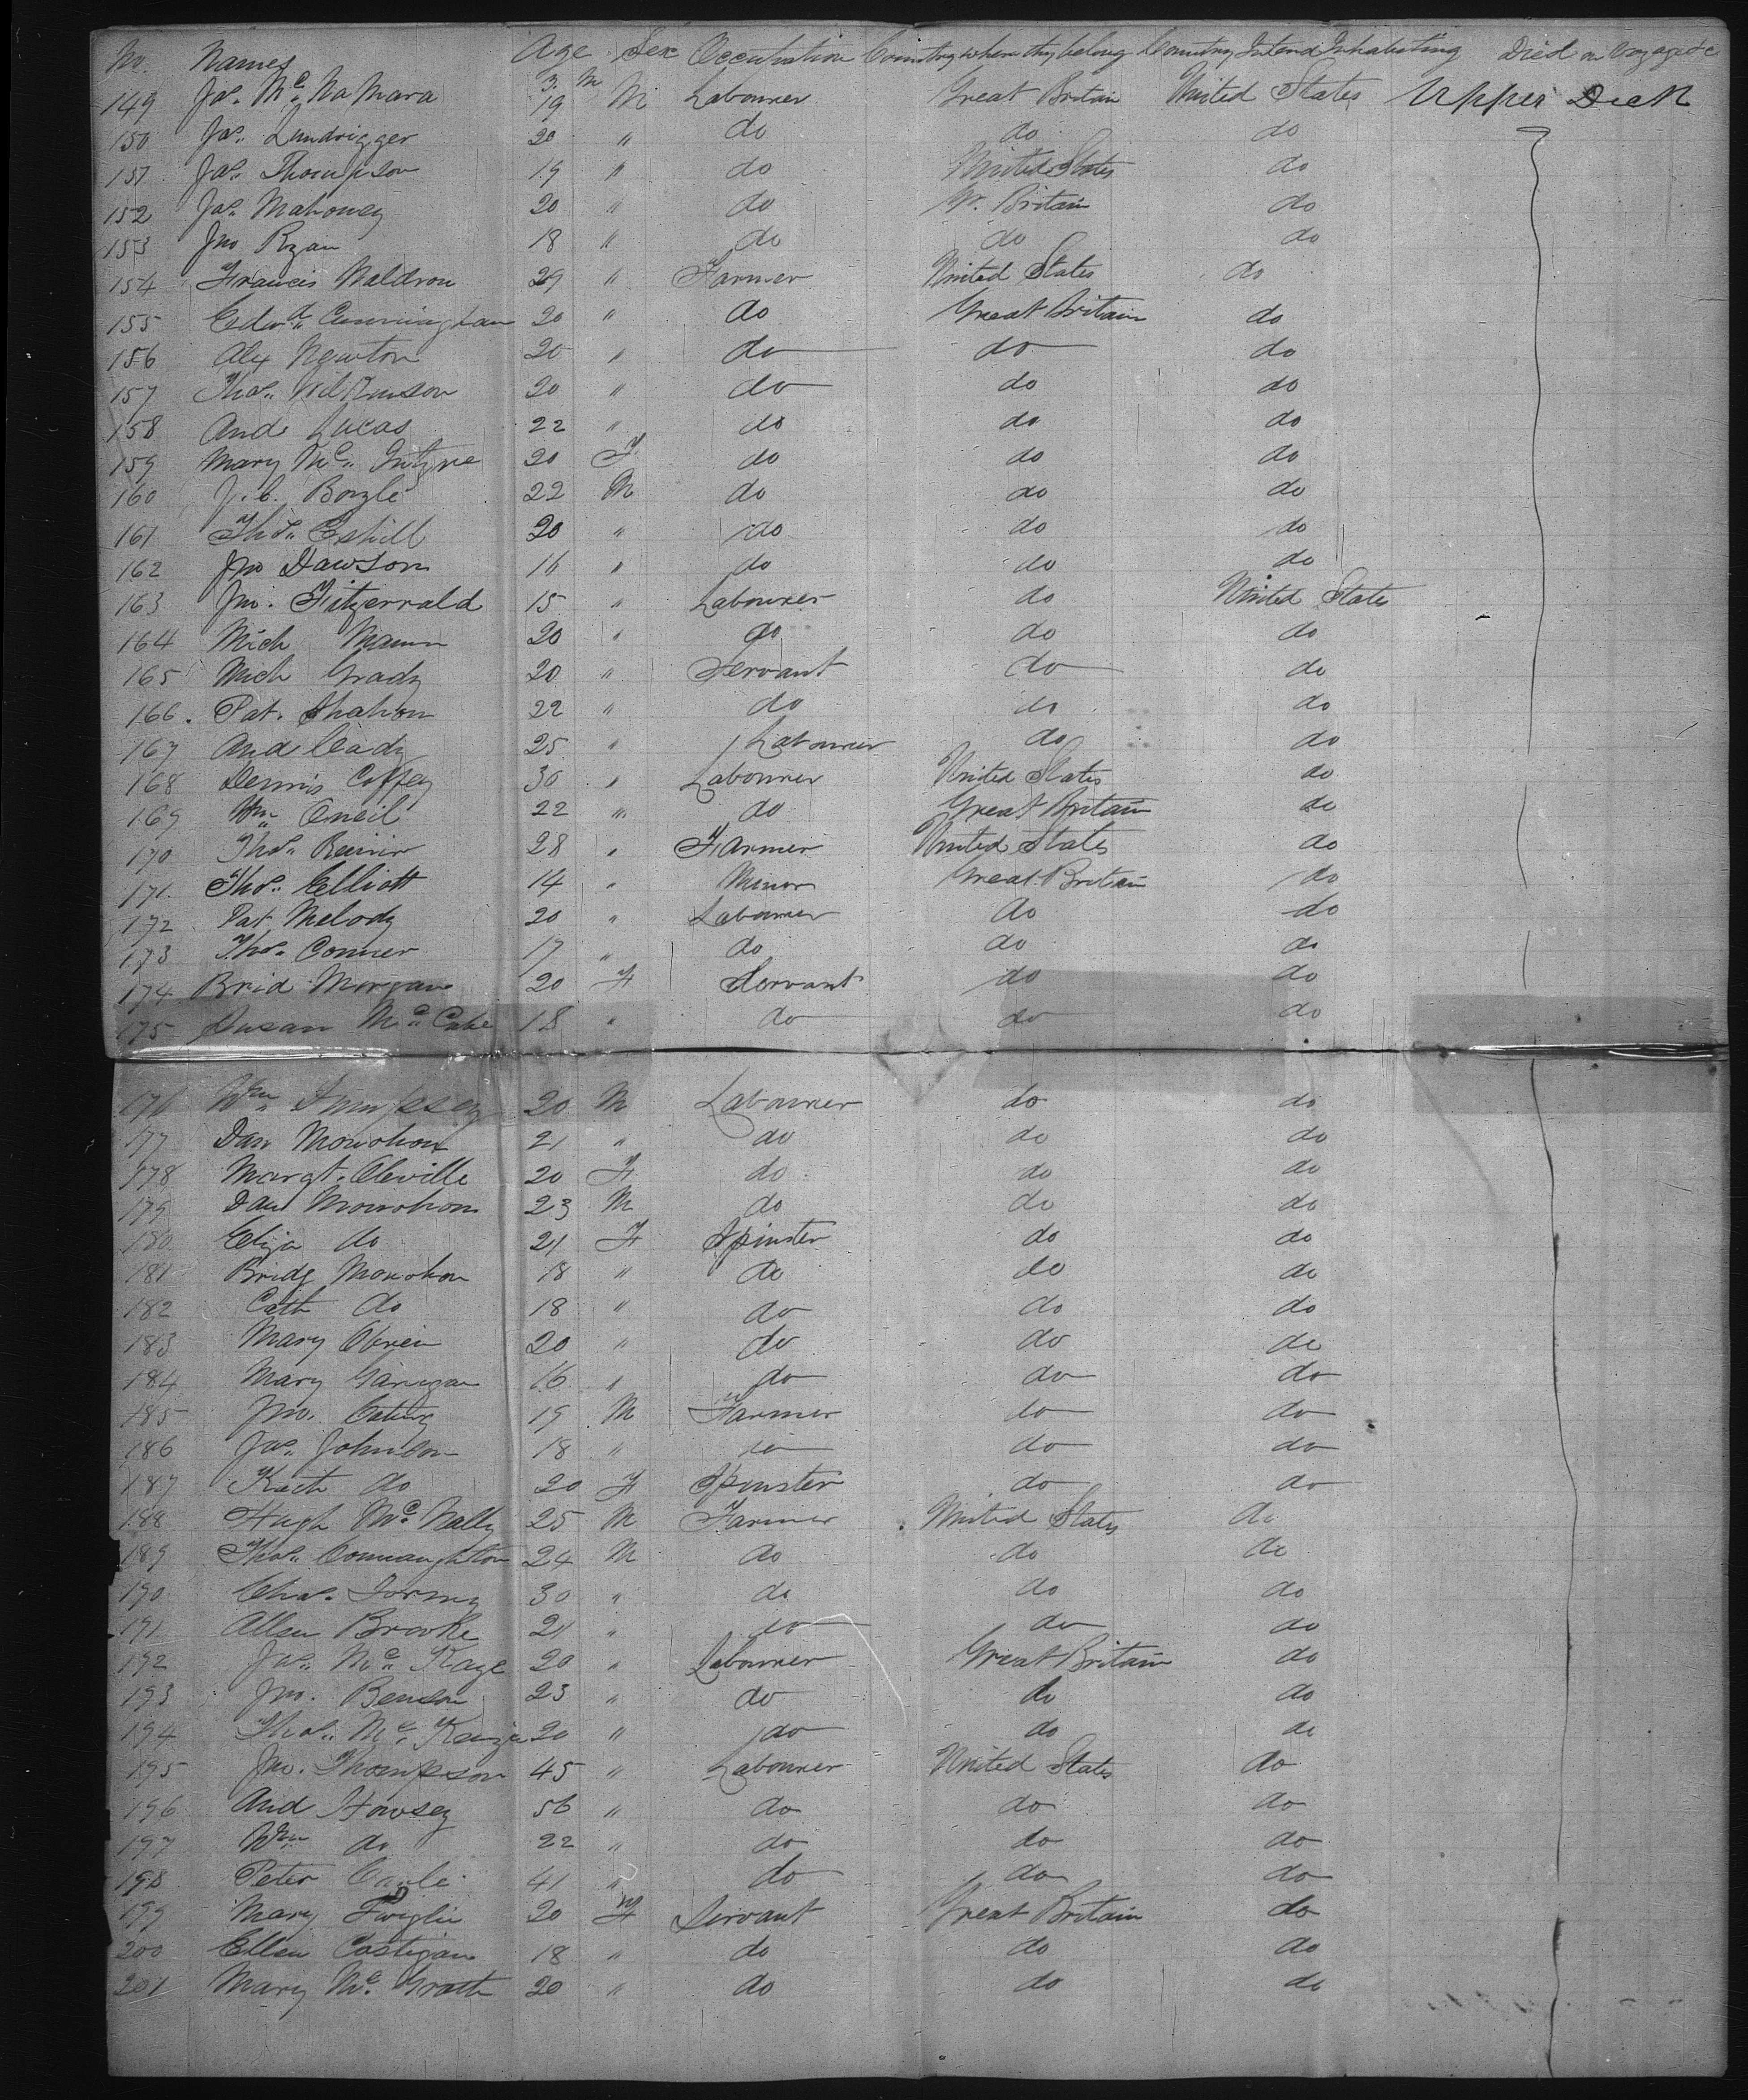 No. Names Age Sex Occupation Country where they belong Country Intend Inhabiting Died on Voyage &c
Y. M
149 Jas. Mc. Na Mara 19 M Labourer Great Britain United States Upper Deck
150 Jas. Lundrigger 20 " do do do
151 Jas. Thompson 19 " do United States do
152 Jas. Mahoney 20 " do Gr. Britain do
153 Jno Ryan 18 " do do do
154 Francis Waldron 29 " Farmer United States do
155 Edwd. Cunningham 20 " do Great Britain do
156 Alex Newton 20 " do do do
157 Thos. Wilkinson 20 " do do do
158 And. Lucas 22 " do do do
159 Mary Mc. Intyre 20 F do do do
160 J. C. Boyle 22 M do do do
161 Thos. Eshill 20 " do do do
162 Jno Dawson 16 " do do do
163 Jno. Fitzerrald 15 " Labourer do United States
164 Mich Mann 20 " do do do
165 Mich Grady 20 " Servant do do
166. Pat. Shahon 22 " do do do
167 And Cady 25 " Labourer do do
168 Dennis Coffey 30 " Labourer United States do
169 Wm Oneil 22 " do Great Britain do
170 Thos. 28 " Farmer United States do
171. Thos. Elliott 14 " Minor Great Britain do
172 Pat Melody 20 " Labourer do do
173 Thos. Conner 17 " do do do
174 Brid Morgan 20 F Servant do do
175 Susan Mc. Cabe 18 " do do do
176 Wm 20 M Labourer do do
177 Dan Monohon 21 " do do do
178 Margt. Cleville 20 F do do do
179 Dan Monohon 23 M do do do
180 Eliza do 21 F Spinster do do
181 Bridg Monohon 18 " do do do
182 Cath do 18 " do do do
183 Mary Obrien 20 " do do do
184 Mary Garigan 16 " do do do
185 Jno. 19 M Farmer do do
186 Jas. Johnson 18 " do do do
187 Kath do 20 F Spinster do do
188 Hugh Mc. Nally 25 M Farmer United States do
189 Thos. Connaughton 24 M do do do
190 Chas. Tormy 30 " do do do
191 Allen Brooke 21 " do do do
192 Jas. Mc. Kage 20 " Labourer Great Britain do
193 Jno. Benson 23 " do do do
194 Thos. Mc. 20 " do do do
195 Jno. Thompson 45 " Labourer United States do
196 And Howsey 56 " do do do
197 Wm do 22 " do do do
198 Peter 41 " do do do
199 Mary 20 F Servant Great Britain do
200 Ellen Costigan 18 " do do do
201 Mary Mc. Grath 20 " do do do